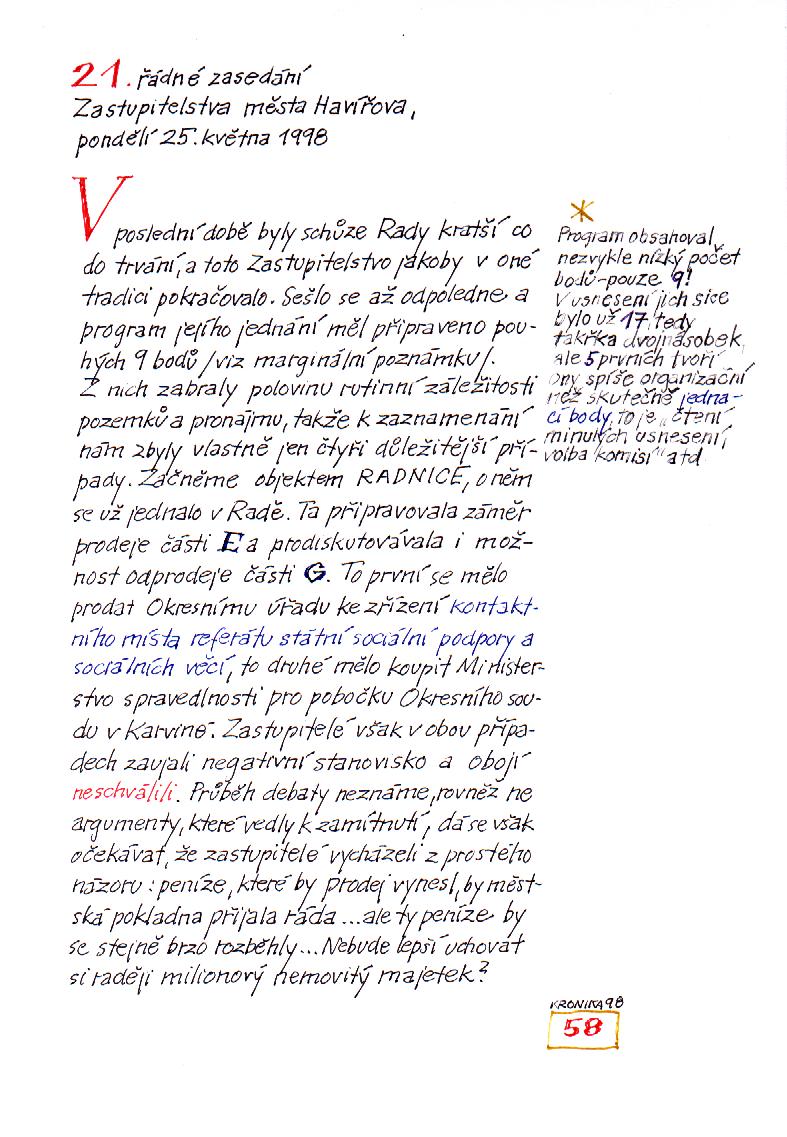 21. řádné zasedání
Zastupitelstva města Havířova,
pondělí 25. května 1998
V poslední době byly schůze Rady kratší co
do trvání, a toto Zastupitelstvo jakoby v oné
tradici pokračovalo. Sešlo se až odpoledne a
program jejího jednání měl připraveno pou-
hých 9 bodů /viz marginální poznámku/.
Z nich zabraly polovinu rutinní záležitosti
pozemků a pronájmu, takže k zaznamenání
nám zbyly vlastně jen čtyři důležitější pří-
pady. Začněme objektem RADNICE, o něm
se už jednalo v Radě. Ta připravovala záměr
prodeje části E a prodiskutovávala i mož-
nost odprodeje části G. To první se mělo
prodat Okresnímu úřadu ke zřízení kontakt-
ního místa referátu státní sociální podpory a
sociálních věcí, to druhé mělo koupit Minister-
stvo spravedlnosti pro pobočku Okresního sou-
du v Karviné. Zastupitelé však v obou přípa-
dech zaujali negativní stanovisko a obojí
neschválili. Průběh debaty neznáme, rovněž ne
argumenty, které vedly k zamítnutí, dá se však
očekávat, že zastupitelé vycházeli z prostého
názoru: peníze, které by prodej vynesl, by měst-
ská pokladna přijala ráda ... ale ty peníze by
se stejně brzo rozběhly... Nebude lepší uchovat
si raději milionový nemovitý majetek?
*
Program obsahoval
nezvykle nízký počet
bodů - pouze 9!
V usnesení jich sice
bylo už 17, tedy
takřka dvojnásobek,
ale 5 prvních tvoří
ony spíše organizační
než skutečné jedna-
cí body, to je „čtení
minulých usnesení,
volba komisí" atd
KRONIKA 98
58